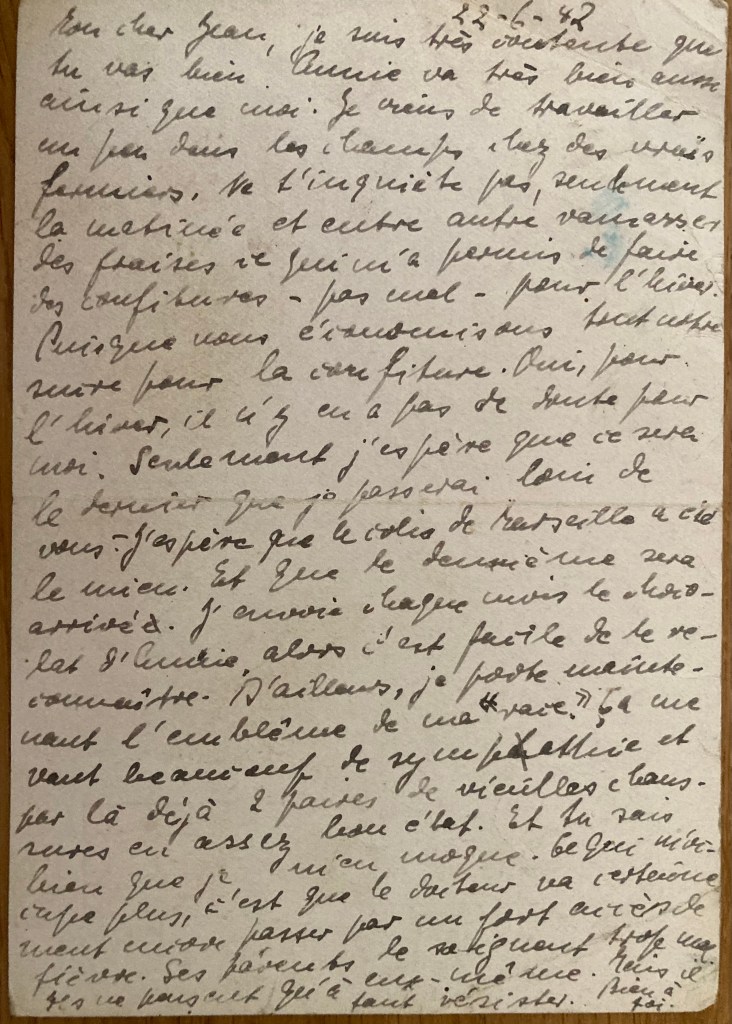 22-6-42
Mon cher Jean, je suis très contente que
tu vas bien. Annie va très bien aussi
ainsi que moi. Je viens de travailler
un peu dans les champs chez des vrais
fermiers. Ne t'inquiète pas, seulement
la matinée et entre autre ramasser
des fraises ce qui m'a permis de faire
des confitures - pas mal - pour l'hiver.
Puisque nous économisons tout notre
sucre pour la confiture. Oui, pour
l'hiver, il n'y en a pas de doute pour
moi. Seulement j'espère que ce sera
le dernier que je passerai loin de
vous. J'espère que le colis de Marseille a été
le mien. Et que le deuxième sera
arrivé. J'envoie chaque mois le choco-
lat d'Annie, alors c'est facile de le re-
connaître. D'ailleurs, je porte mainte-
nant l'emblême de ma "race". Ça me
vaut beaucoup de sympathie et
par là déjà 2 paires de vieilles chaus-
sures en assez bon état. Et tu sais
bien que je m'en moque. Ce qui m'oc-
cupe plus, c'est que le docteur va certaine
ment encore passer par un fort accès de
fièvre. Ses parents le soignent trop mal
ne pensent qu'à eux-même. Mais il
faut résister. Bien à
toi.